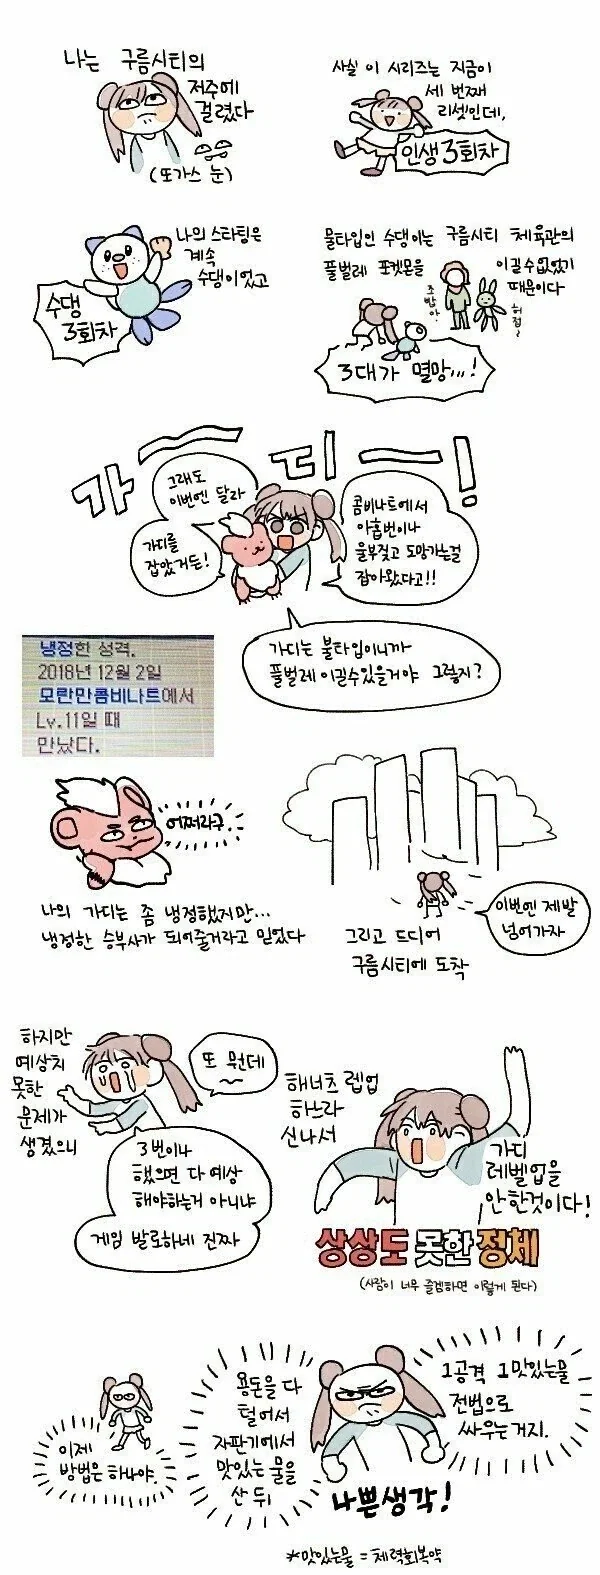 나는 구름시티의
저주에
걸렸다
(또가스 눈)
사실 이 시리즈는 지금이
세 번째
리셋인데,
인생 3회차
나의 스타팅은
계속
수댕이었고
수댕
3회차
물타입인 수댕이는 구름시티 체육관의
풀벌레 포켓몬을 이길 수 없었기
때문이다
초밥아..
허접~
3대가 멸망,,,!
가디!
그래도
이번엔 달라
가디를
잡았거든!
콤비나트에서
아홉번이나
울부짖고 도망가는걸
잡아왔다고!!
가디는 불타입이니까
풀벌레 이길수있을거야 그렇지?
냉정한 성격.
2018년 12월 2일
모란만콤비나트에서
Lv.11일 때
만났다.
어쩌라구
나의 가디는 좀 냉정했지만...
냉정한 승부사가 되어줄거라고 믿었다
이번엔 제발
넘어가자
그리고 드디어
구름시티에 도착
하지만
예상치
못한
문제가
생겼으니
또 뭔데
3번이나
했으면 다 예상
해야하는거 아니냐
게임 발로하네 진짜
해너츠 렙업
하느라
신나서
가디
레벨업을
안한것이다!
상상도 못한 정체
(사람이 너무 즐겜하면 이렇게 된다)
이제
방법은 하나야.
용돈을 다
털어서
자판기에서
맛있는 물을
산 뒤
1공격 1맛있는물
전법으로
싸우는거지.
나쁜생각!
*맛있는물 = 체력회복약